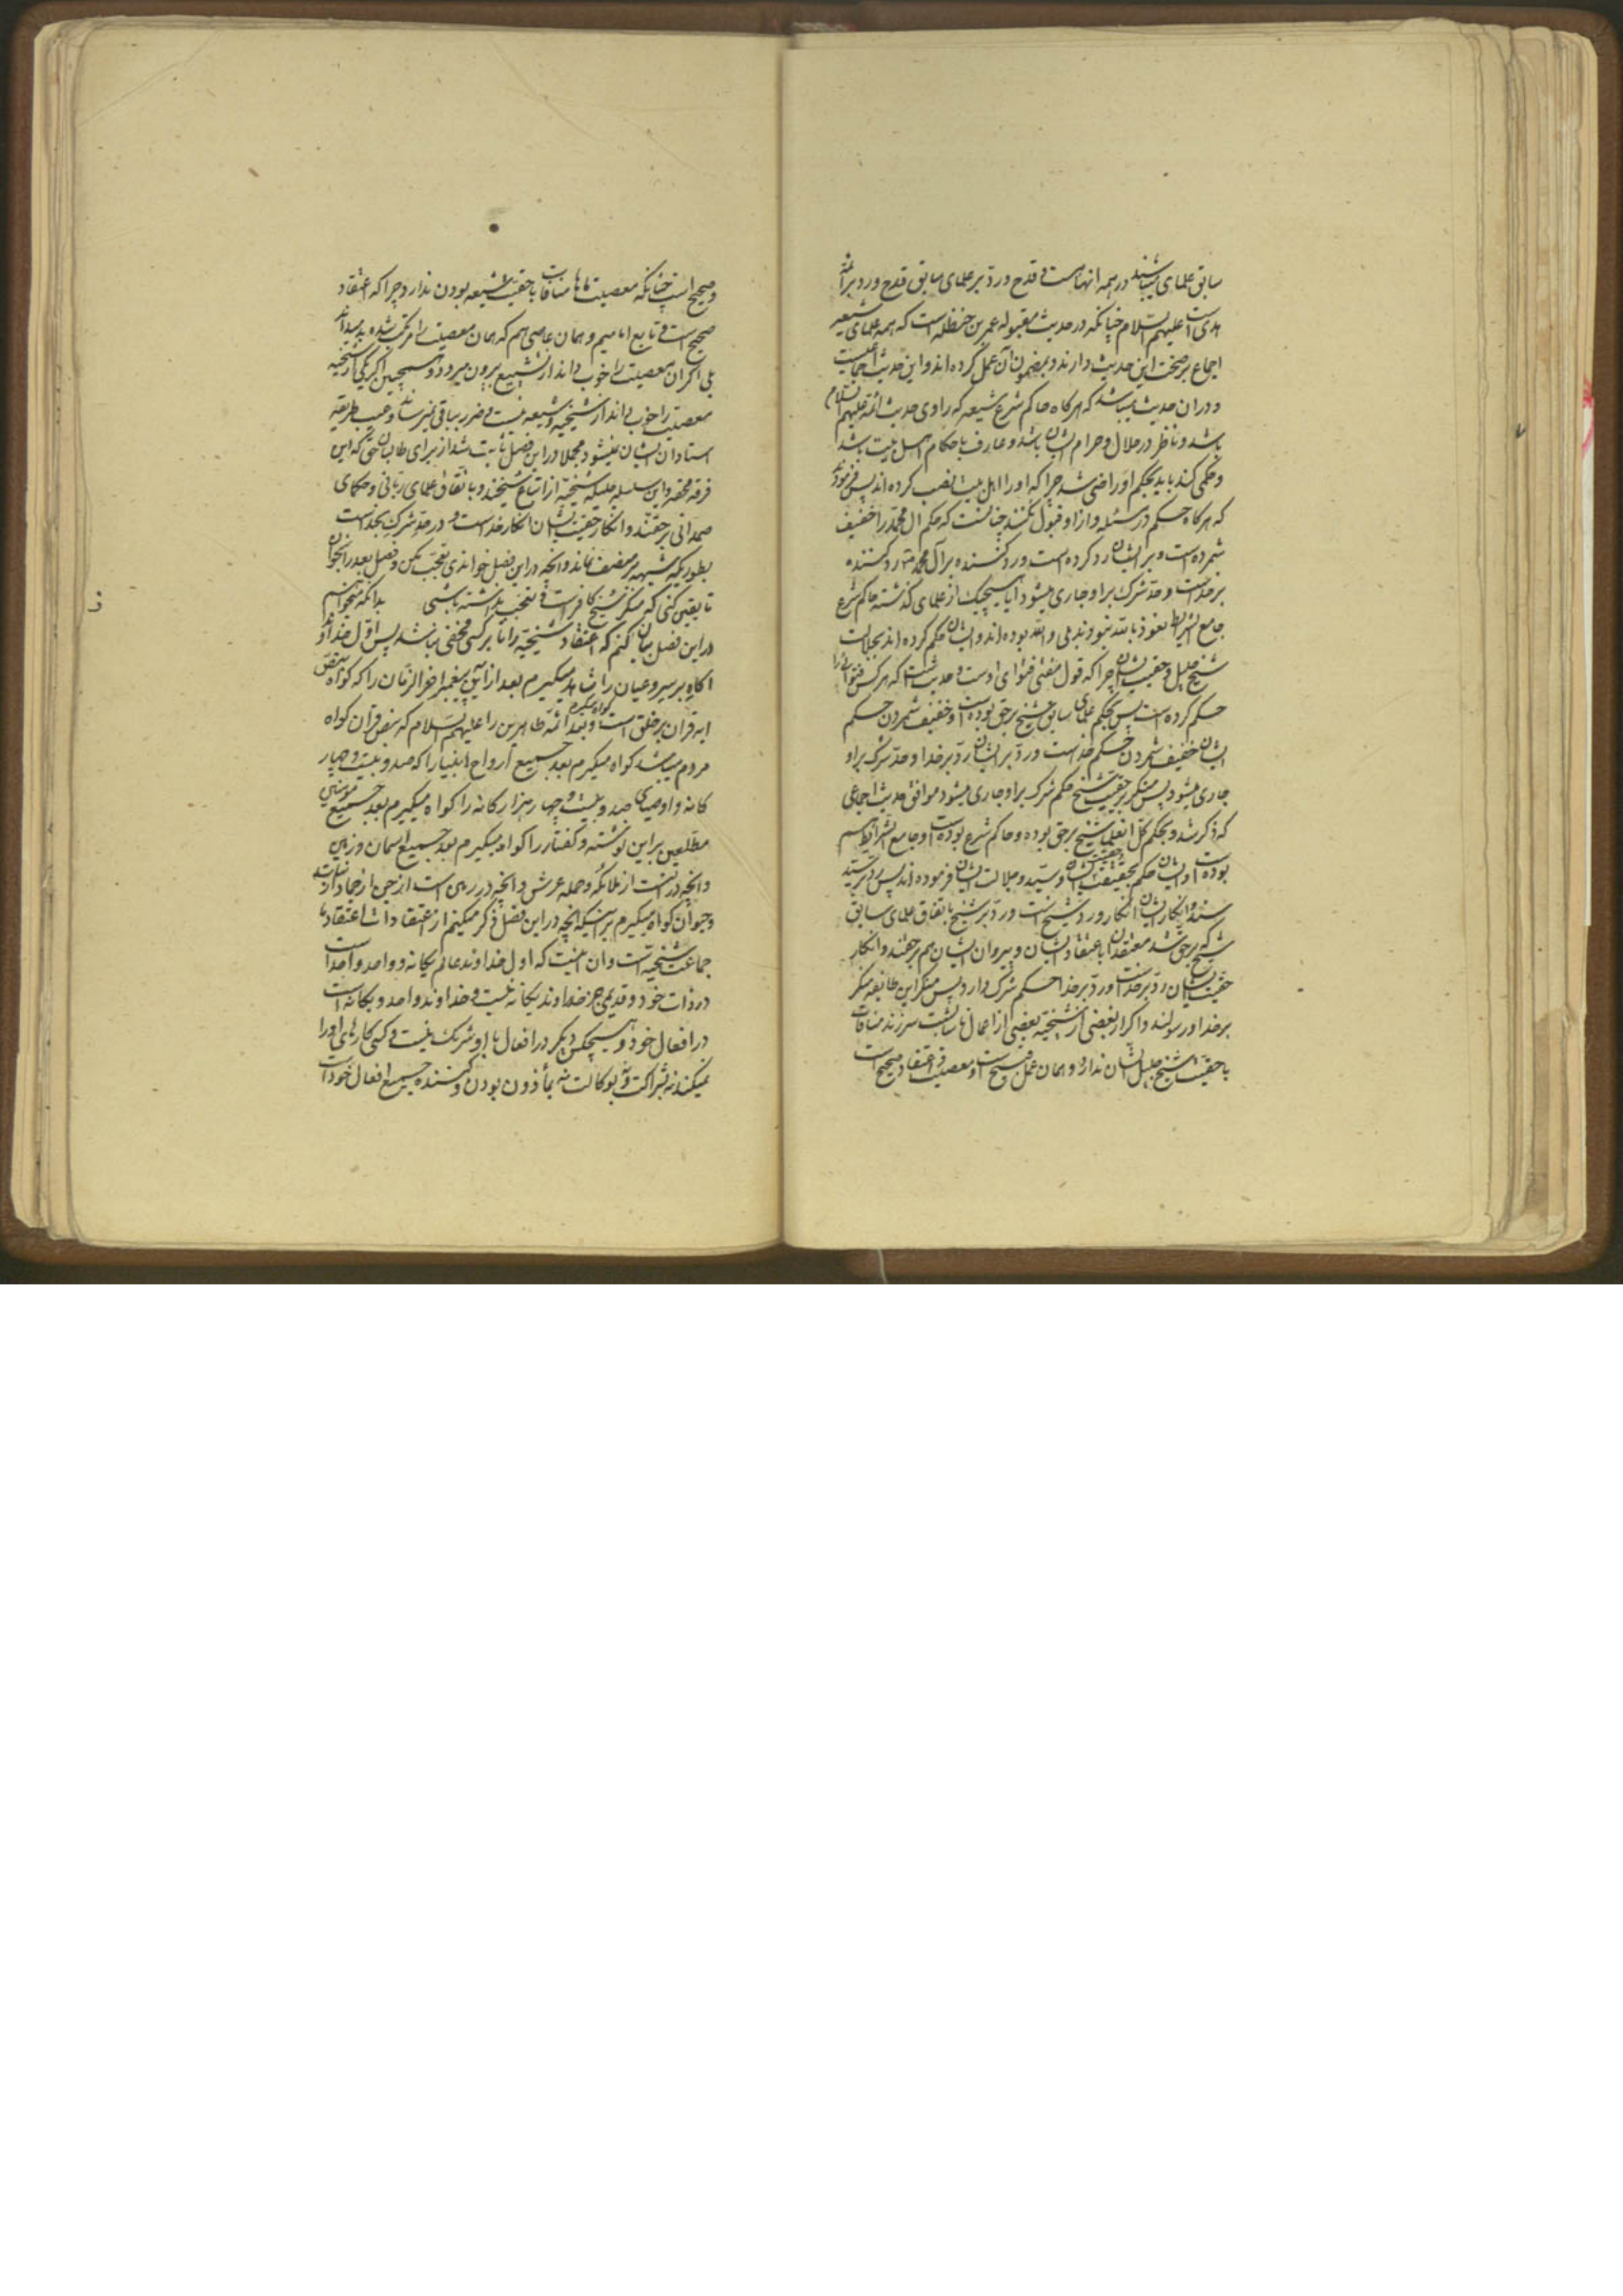 سابق علمای میباشند در همه انهاست و قدح و رد بر علمای سابق قدح و رد بر ائمه
هدی است علیهم السلام چنانکه در حدیث مقبوله عمر بن حنظله است که همه علمای شیعه
اجماع بر صحت این حدیث دارند و بمضمون آن عمل کرده اند و این حدیث
و در ان حدیث میباشد که هر کاه حاکم شرع شیعه که راوی حدیث ائمه علیهم السلام
باشد و ناظر در حلال و حرام ایشان باشد و عارف باحکام اهل بیت باشد
و حکمی کند باید بحکم او راضی شد چرا که او را اهل بیت نصب کرده اند پس فرموده
که هر کاه حکم در مسئله و از او قبول نکنند چنانست که حکم ال محمد را خفیف
شمرده است و بر ایشان رد کرده است و رد کننده بر آل محمد رد کننده
بر خداست و حد شرک بر او جاری میشود ایا هیچیک از علمای کذشته حاکم شرع
جامع الشرایط نعوذ بالله نبودند بلی والله بوده اند و ایشان حکم کرده اند بجلالت
شیخ جلیل و حقیت ایشان چرا که قول مفتی فتوای اوست و حدیث است که هر کس فتوائی را
حکم کرده است پس بحکم علمای سابق شیخ برحق بوده است و خفیف شمردن حکم
ایشان خفیف شمردن حکم خداست و رد بر ایشان رد بر خدا و حد شرک بر او
جاری میشود پس منکر بر حقیت شیخ حکم شرک بر او جاری میشود موافق حدیث اجماعی
که ذکر شد و بحکم کل انعلما شیخ برحق بوده و حاکم شرع بوده است و جامع الشرایط هم
بوده است و ایشان حکم بحقیقت حقیت ایشان و سید و جلالت ایشان فرموده اند پس رد بر سید
سند و انکار ایشان انکار و رد شیخ است و رد بر شیخ باتفاق علمای سابق
شیخ که برحق شد معتقدان باعتقاد ایشان و پیروان ایشان هم برحقند و انکار
حقیت ایشان رد بر خداست و رد بر خدا حکم شرک دارد پس منکر این طایفه منکر
بر خدا و رسولند و اکر از بعضی از شیخیه بعضی از اعمال ناشایست سر زند منافات
با حقیت شیخ جلیل ایشان ندارد و همان عمل قبیح است و معصیت و اعتقاد صحیح است
و صحیح است چنانکه معصیت ماها منافات با حقیت شیعه بودن ندارد چرا که اعتقاد
صحیح است و تابع امامیم و همان عاصی هم که همان معصیت را مرتکب شده بد میداند
بلی اکر ان معصیت را خوب داند از تشیع بیرون میرود و همچنین اکر یکی از شیخیه
معصیت را خوب داند از شیخیه و شیعه نیست و ضرر بباقی نمیرساند و عیب طریقه
استادان ایشان نمیشود مجملا در این فصل ثابت شد از برای طالبان حق که این
فرقه محقه و این سلسله جلیله شیخیه از اتباع شیخند و باتفاق علمای ربانی و حکمای
صمدانی برحقند و انکار حقیت ایشان انکار خداست و در حد شرک بخداست
بطوریکه شبهه بر منصف نماند و انچه در این فصل خواندی تعجب مکن و فصل بعد را بخوان
تا یقین کنی که منکر شیخ کافر است و تعجب نداشته باشی بدانکه میخواهم
در این فصل بیان کنم که اعتقاد شیخیه را تا بر کسی مخفی نباشد پس اول خداوند
اکاه بر سر و عیان را شاهد میکیرم بعد از آن پیغمبر اخر الزمان را که کواه بنص
ایه قران بر خلق است کواه میکیرم و بعد ائمه طاهرین را علیهم السلام که بنص قران کواه
مردم میباشند کواه میکیرم بعد جمیع ارواح انبیا را که صد و بیست و چهار
کانه و اوصیای صد و بیست و چهار هزار کانه را کواه میکیرم بعد جمیع مؤمنین
مطلعین بر این نوشته و کفتار را کواه میکیرم بعد جمیع اسمان و زمین
و انچه در انست از ملائکه و حمله عرش و انچه در زمین است از جن از جماد از نبات
و حیوان کواه میکیرم بر اینکه انچه در این فصل ذکر میکنم از اعتقادات اعتقادها
جماعت شیخیه است و ان اینست که اول خداوند عالم یکانه و واحد و احد است
در ذات خود و قدیمی جز خداوند یکانه نیست و خداوند واحد و یکانه است
در افعال خود و هیچکس دیکر در افعال با او شریک نیست و کسی کارهای او را
نمیکند نه بشراکت و نه بوکالت نه بمأذون بودن و کننده جمیع افعال خود است